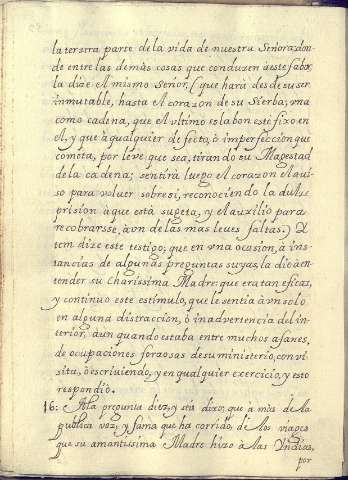 la tersera parte de la vida de nuestra Señora, don-
de entre las demàs cosas que conduzen à este fabor,
la dize el mismo Señor, (que hará desde su ser
inmutable, hasta el corazon de su Sierba, vna
como cadena, que el vltimo eslabon estè fixo en
el, y que à qualquier defecto, ò imperfeccion que
cometa, por leve que sea, tirando su Magestad
de la cadena; sentirà luego el corazon el aui-
so para voluer sobresi, reconociendo la dulze
prision à que està sugeta, y el auxilio para
recobrarsse, àon de las mas leues faltas.) Y
tem dize este testigo; que en vna ocasion, à ins-
tancias de algunas preguntas suyas, la dio à en-
tender su Charissima Madre; que era tan eficas,
y continuo este estimulo, que le sentia à vn solo
en alguna distraccion, ò inadvertencia del in-
terior, aun quando estaba entre muchos afanes,
de ocupaciones forzosas de su ministerio, con vi-
sita, ò escriuiendo, y en qualquier exercicio, y esto
respondiò.
16: A la pregunta diez, y seis dixo; que à màs de la
publica voz, y fama que ha corrido, de los viages
que su amantissima Madre hizo à las Yndias,
por